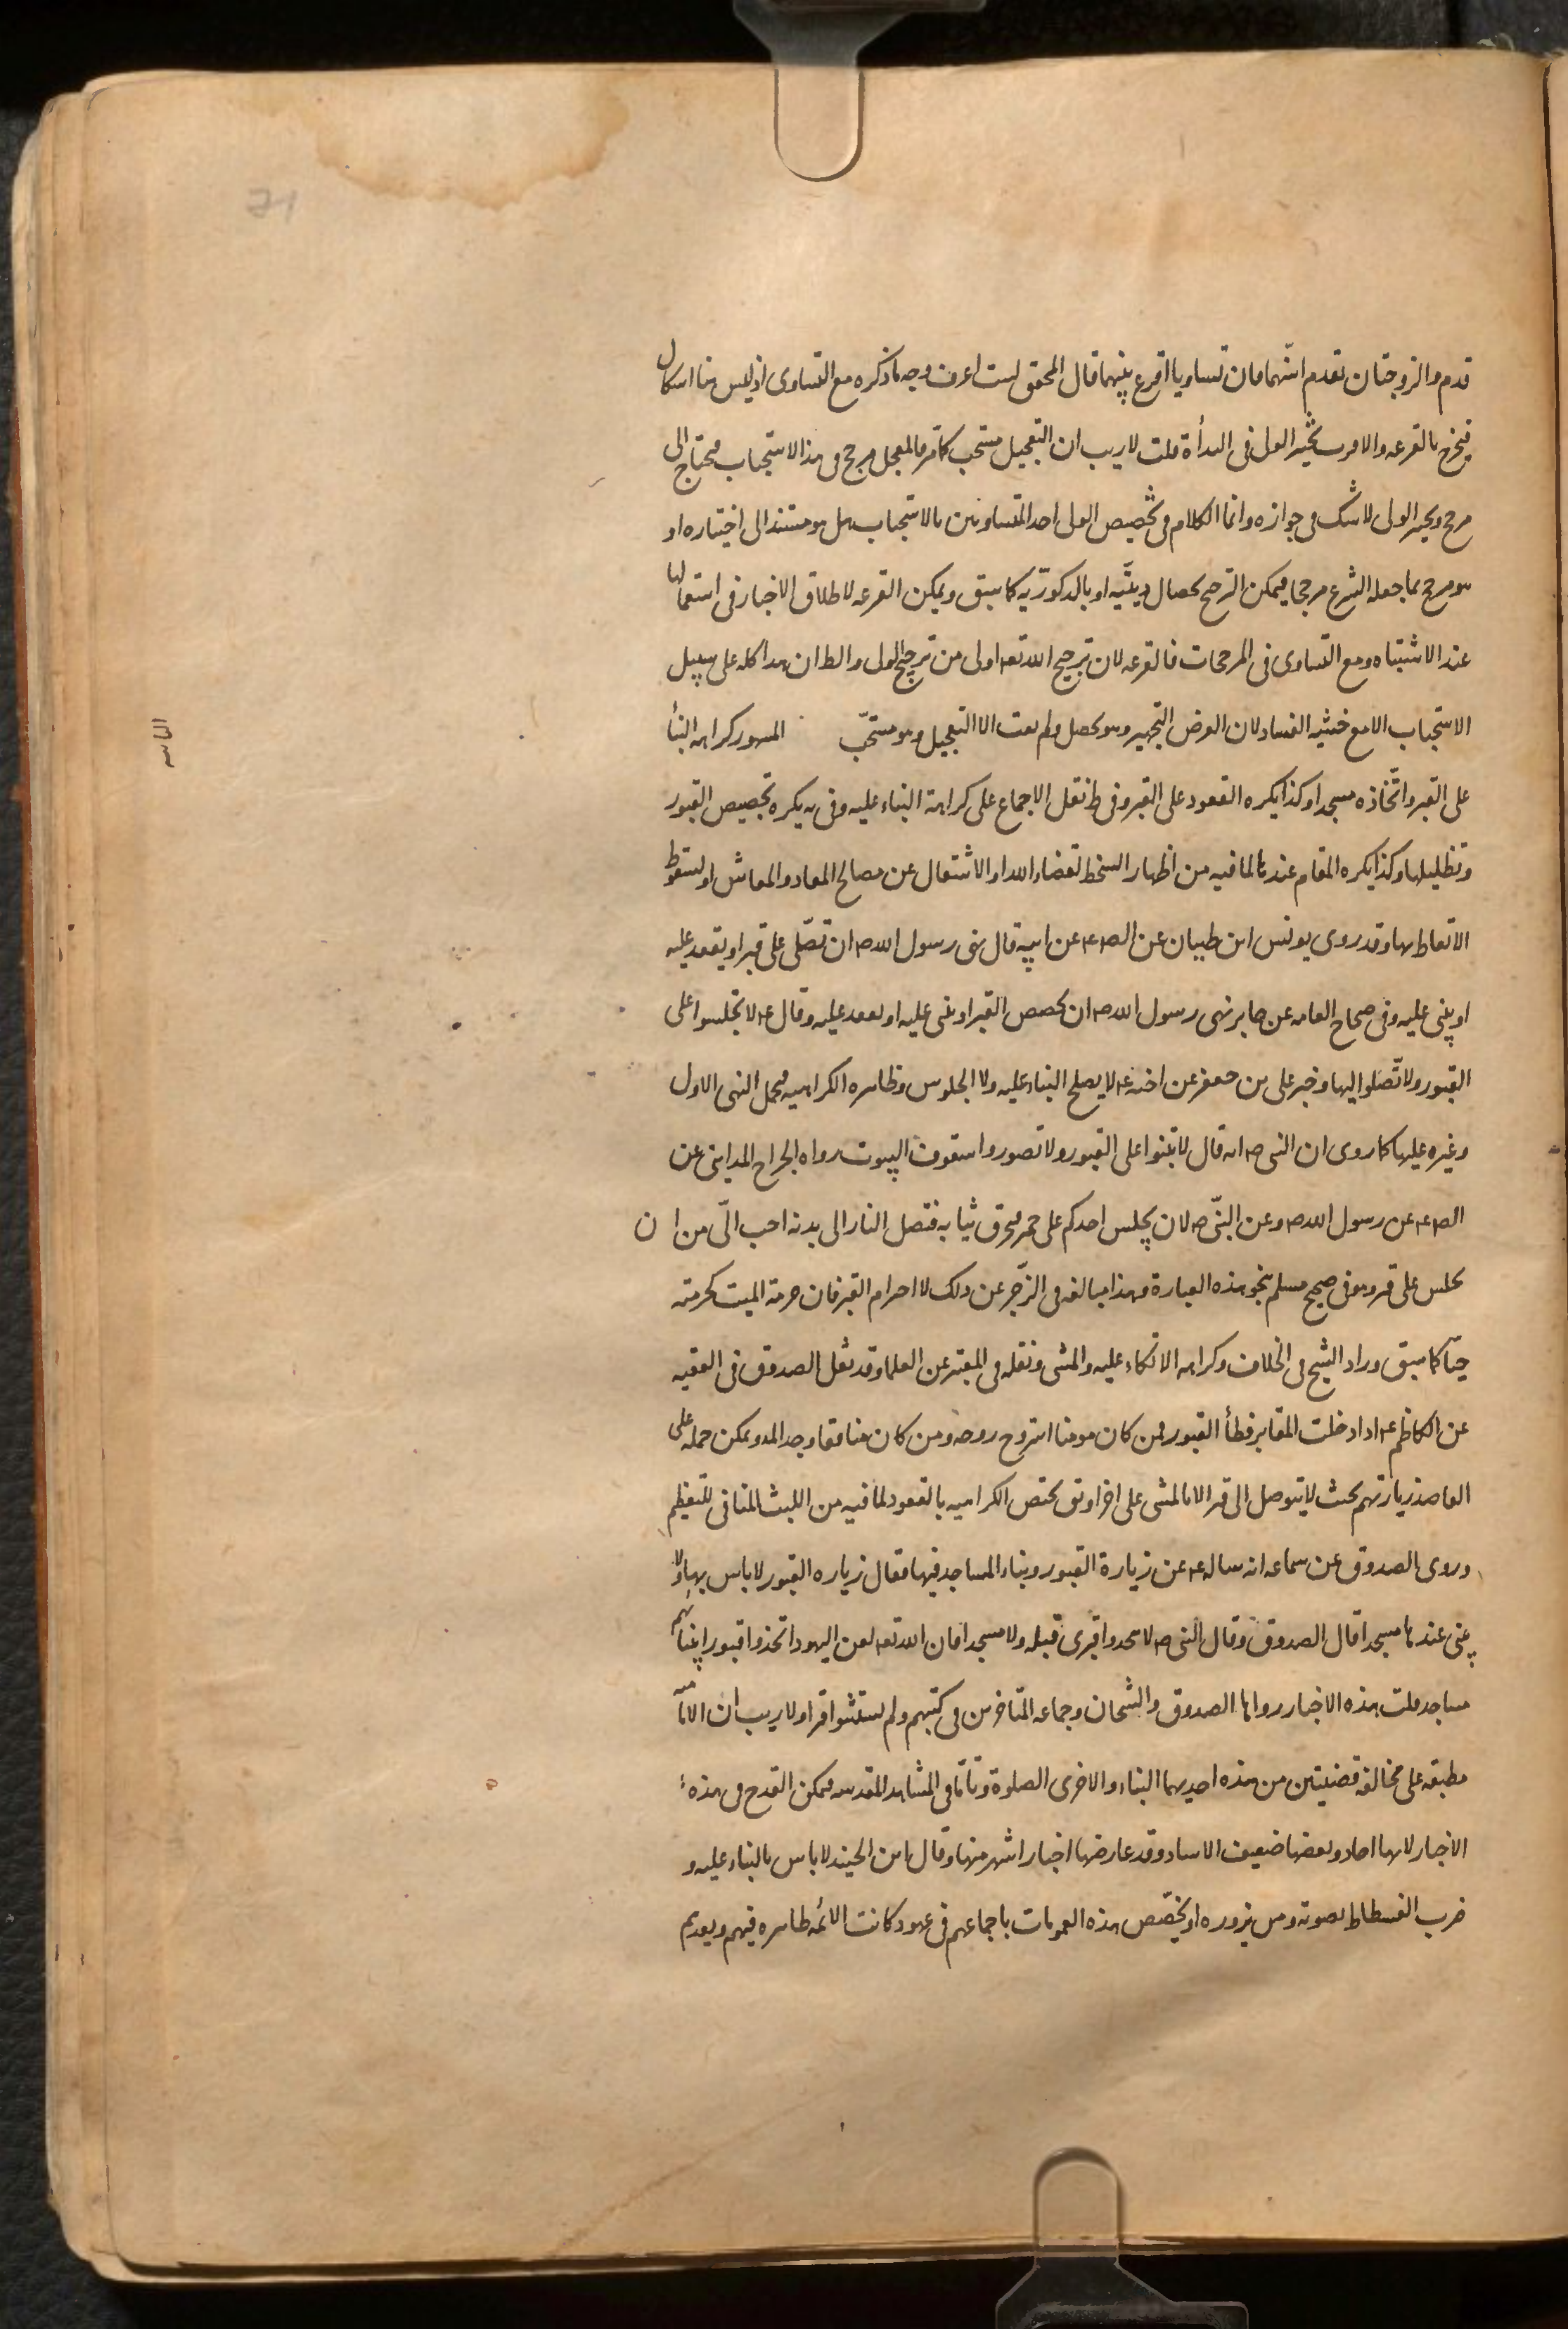 قدم والزوجتان تقدم اسنهما فان تساويا اقرع بينهما قال المحقق لست اعرف وجه ما ذكره مع التساوى اذ ليس هنا اشكال
فيخرج بالقرعه والاقرب تخير الولى فى البدأة قلت لا ريب ان التعجيل مستحب كما مر فالمعجل مرجح فى هذا الاستحباب فيحتاج الى
مرجح وتخير الولى لا شك فى جوازه وانما الكلام فى تخصيص الولى احد المتساويين بالاستحباب هل هو مستند الى اختياره او
هو مرجح بما جعله الشرع مرجحا فيمكن الترجيح بخصال دينيّه او بالذكوريّه كما سبق ويمكن القرعه لاطلاق الاخبار فى استعمالها
عند الاشتباه ومع التساوى فى المرجحات فالقرعه لان ترجيح الله تعه اولى من ترجيح الولى والظ ان هذا كله على سبيل
الاستحباب الا مع خشيه الفساد لان الغرض التجهيز وهو يحصل ولم يفت الا التعجيل وهو مستحّب المشهور كراهه البنأ
على القبر واتّخاذه مسجدا وكذا يكره القعود على القبر وفى ط نقل الاجماع على كراهة البناء عليه وفى يه يكره تجصيص القبور
وتظليلها وكذا يكره المقام عندها لما فيه من اظهار السخط لقضاء الله او الاشتغال عن مصالح المعاد والمعاش او لسقوط
الاتعاظ بها وقد روى يونس ابن ظبيان عن الص ع عن ابيه قال نهى رسول الله ص ان تصّلى على قبر او يقعد عليه
او يبنى عليه وفى صحاح العامه عن جابر نهى رسول الله ص ان يجصص القبر او يبنى عليه او يقعد عليه وقال ع لا تجلسوا على
القبور ولا تصّلوا اليها وخبر على بن جعفر عن اخيه ع لا يصلح البناء عليه ولا الجلوس وظاهره الكراهيه فيحمل النهى الاول
وغيره عليها كما روى ان النبى ص انه قال لا تبنوا على القبور ولا تصوروا سقوف البيوت رواه الجراح المداينى عن
الص ع عن رسول الله ص وعن النبىّ ص لان يجلس احدكم على جمر فيحرق ثيابه فتصل النار الى بدنه احب الىّ من ان
يجلس على قبر وهو فى صحيح مسلم بنحو هذه العبارة وهذا مبالغه فى الزّجر عن ذلك لاحرام القبر فان حرمة الميت كحرمته
حيّا كما سبق وزاد الشيخ فى الخلاف وكراهه الاتكاء عليه والمشى ونقله فى المعتبر عن العلما وقد نقل الصدوق فى الفقيه
عن الكاظم ع اذا دخلت المقابر فطأ القبور فمن كان مومنا استروح روحه ومن كان منافقا وجد المه ويمكن حمله على
القاصد زيارتهم بحيث لا يتوصل الى قبر الا بالمشى على اخر او يق يختص الكراهيه بالقعود لما فيه من اللبث المنافى للتعظيم
وروى الصدوق عن سماعه انه ساله ع عن زيارة القبور وبناء المساجد فيها فقال زياره القبور لا باس بها ولا
يبنى عندها مسجدا قال الصدوق وقال النبى ص لا تتخذوا قبرى قبله ولا مسجدا فان الله تعه لعن اليهود اتخذوا قبور انبيائهم
مساجد قلت هذه الاخبار رواها الصدوق والشيخان وجماعه المتاخرين فى كتبهم ولم يستثنوا قبرا ولا ريب ان الاماميه
مطبقه على مخالفه قضيتين من هذه احديهما البناء والاخرى الصلوة وتاتا فى المشاهد المقدسه فيمكن القدح فى هذه
الاخبار لانها احاد وبعضها ضعيف الاسناد وقد عارضها اخبار اشهر منها وقال ابن الجنيد لا باس بالبناء عليه و
ضرب الفسطاط لصونه ومن يزوره او يخصّص هذه العمومات باجماعهم فى عهود كانت الائمه ظاهره فيهم وبعدهم